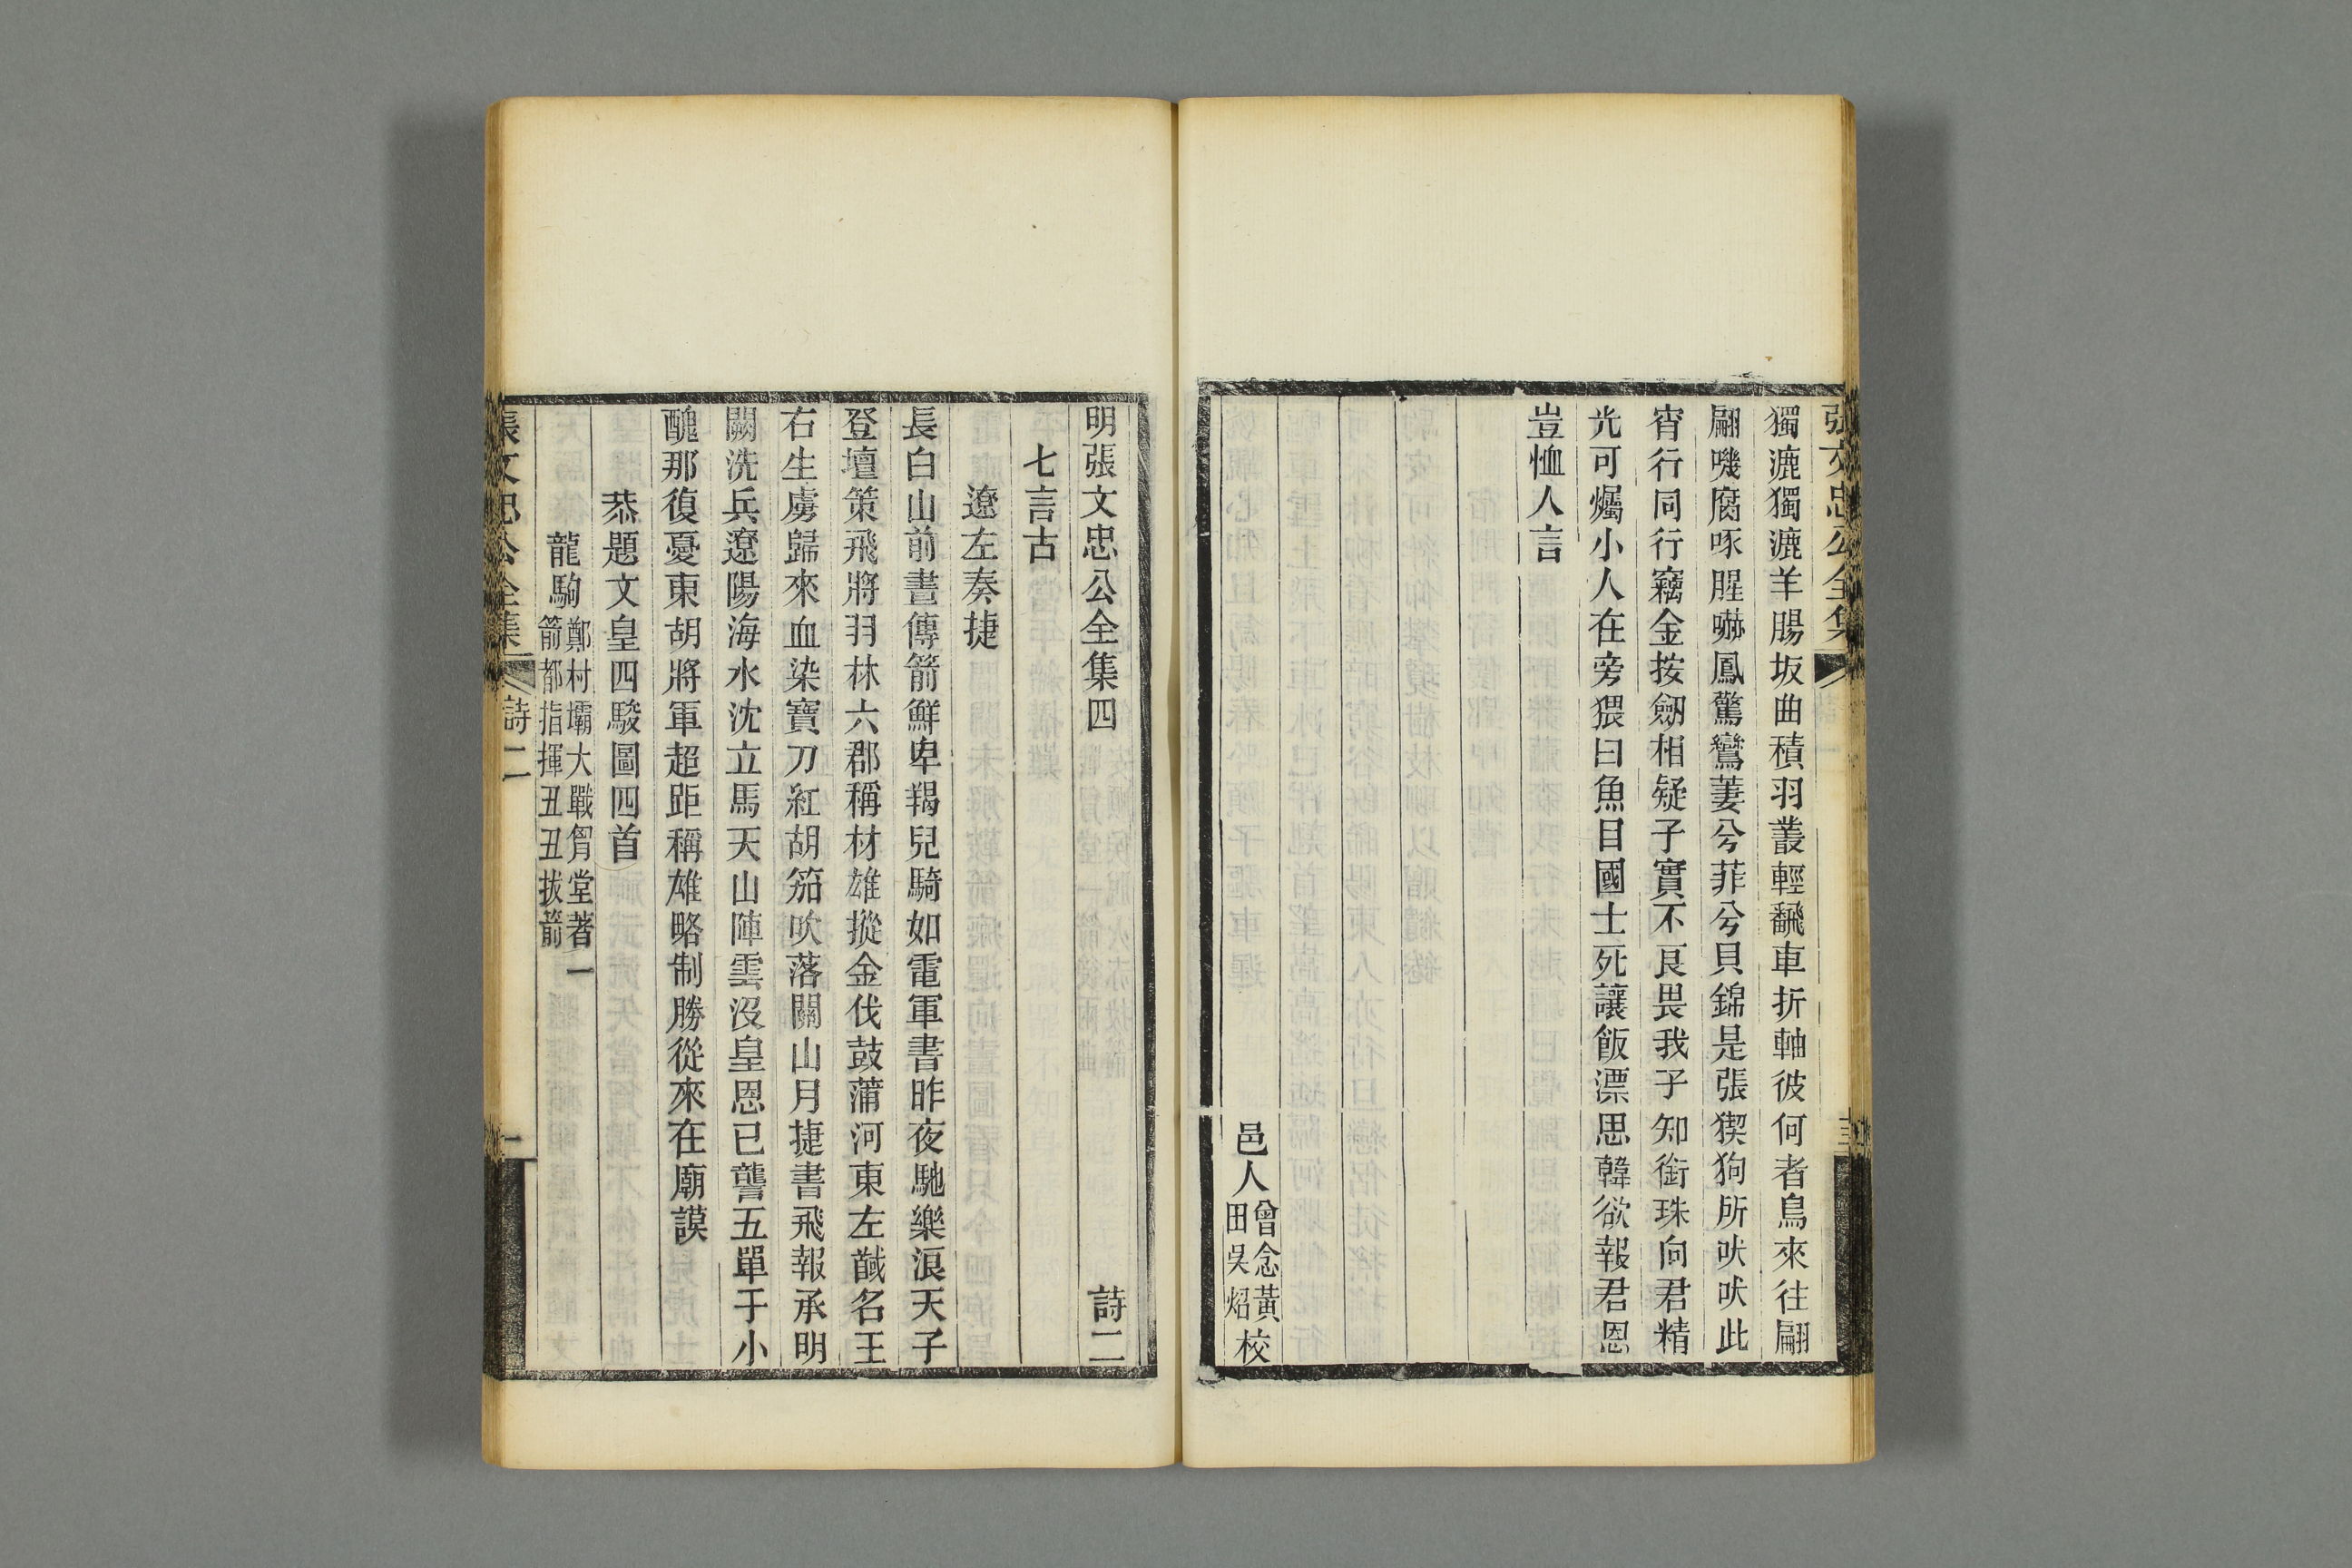 張文忠公全集
獨漉獨漉羊腸坂曲積羽叢輕飜車折軸彼何者鳥來往翩
翩嘰腐啄腥嚇鳳驚鸞萋兮菲兮貝錦是張猰狗所吠吠此
宵行同行竊金按劒相疑子實不良畏我子知銜珠向君精
光可爥小人在旁猥曰魚目國士死讓飯漂思韓欲報君恩
豈恤人言
邑人曾念黃
田吳炤校
明張文忠公全集四 詩二
七言古
遼左奏捷
長白山前晝傳箭鮮卑羯兒騎如電軍書昨夜馳樂浪天子
登壇策飛將羽林六郡稱材雄摐金伐鼓蒲河東左馘名王
右生虜歸來血染寶刀紅胡笳吹落關山月捷書飛報承明
闕洗兵遼陽海水沈立馬天山陣雲沒皇恩已讋五單于小
醜那復憂東胡將軍超距稱雄略制勝從來在廟謨
恭題文皇四駿圖四首
龍駒鄭村壩大戰胷堂著一
箭都指揮丑丑拔箭
張文忠公全集 詩二 一